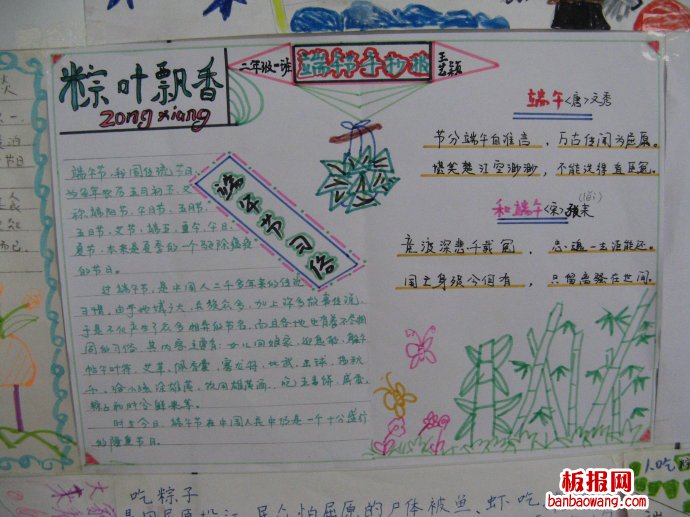 粽叶飘香
zong xiang
二年级一班
端午节手抄报
端午〈唐〉文秀
节分端午自谁言，万古传闻为屈原。
堪笑楚江空渺渺，不能洗得直臣冤。
和端午〈宋〉张耒
竞渡深悲千载冤，忠魂一去讵能还。
国亡身殒今何有，只留离骚在世间。
端午节习俗
端午节，我国传统节日，
为每年农历五月初五，又
称端阳节，午日节，五月节，
五日节，艾节，端五，重午，午日，
夏节，本来是夏季的一个驱除瘟疫
的节日。
过端午节，是中国人二千多年来的传统
习惯，由于地域广大，民族众多，加上许多故事传说，
于是不仅产生了众多相异的节名，而且各地也有着不尽相
同的习俗。其内容主要有：女儿回娘家，挂钟馗，
帖午叶符，艾草，佩香囊，赛龙舟，比武，击球，荡秋
千，给小孩涂雄黄，饮用雄黄酒，吃五毒饼，咸蛋，
粽子和时令鲜果等。
时至今日，端午节在中国人民中仍是一个十分盛行
的隆重节日。
吃粽子
人吃
板报网
banbaowang.com